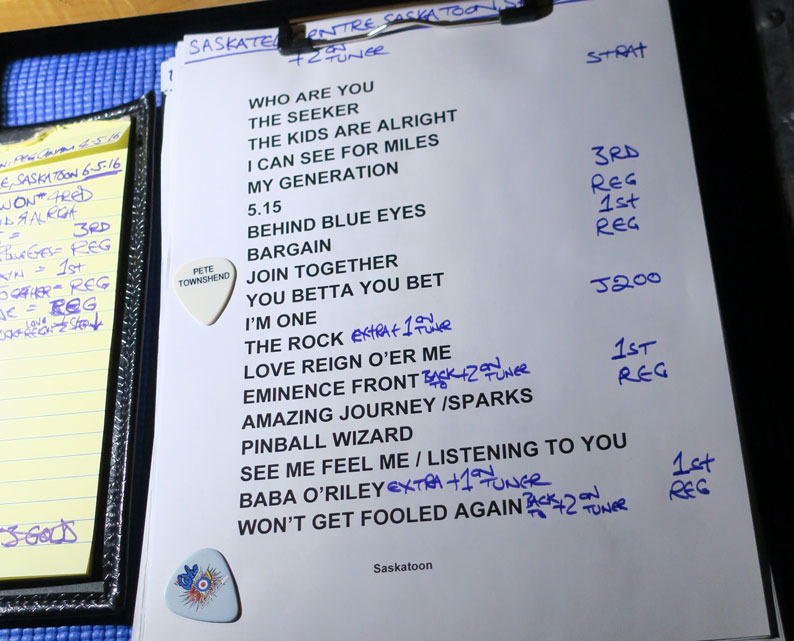 SASKATEL CENTRE SASKATOON
+2 ON TUNER
STRAT
WHO ARE YOU
THE SEEKER
THE KIDS ARE ALRIGHT
I CAN SEE FOR MILES
MY GENERATION 3RD
5.15 REG
BEHIND BLUE EYES 1st
BARGAIN REG
JOIN TOGETHER
YOU BETTA YOU BET
I'M ONE J200
THE ROCK EXTRA +1 ON TUNER
LOVE REIGN O'ER ME 1ST
EMINENCE FRONT BACK TO +2 ON TUNER REG
AMAZING JOURNEY /SPARKS
PINBALL WIZARD
SEE ME FEEL ME / LISTENING TO YOU
BABA O'RILEY EXTRA +1 ON TUNER 1st
WON'T GET FOOLED AGAIN BACK TO +2 ON TUNER REG
Saskatoon
PETE
TOWNSHEND
4-5-16
SASKATOON 6-5-16
3RD
= REG
= 1st
= REG
= REG
GOLD